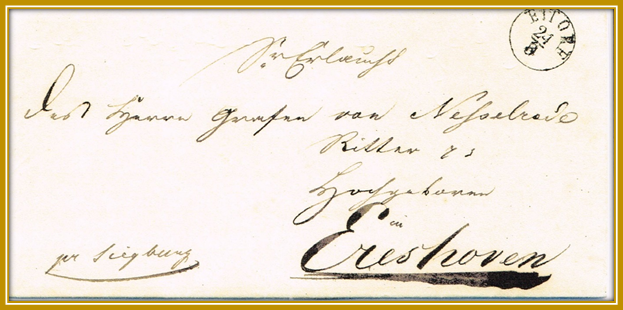 EITORF
24
Sr Erlaucht
des Herrn Grafen von Nesselrode
Ritter
Hochgeboren
in
Ereshoven
pr Siegburg